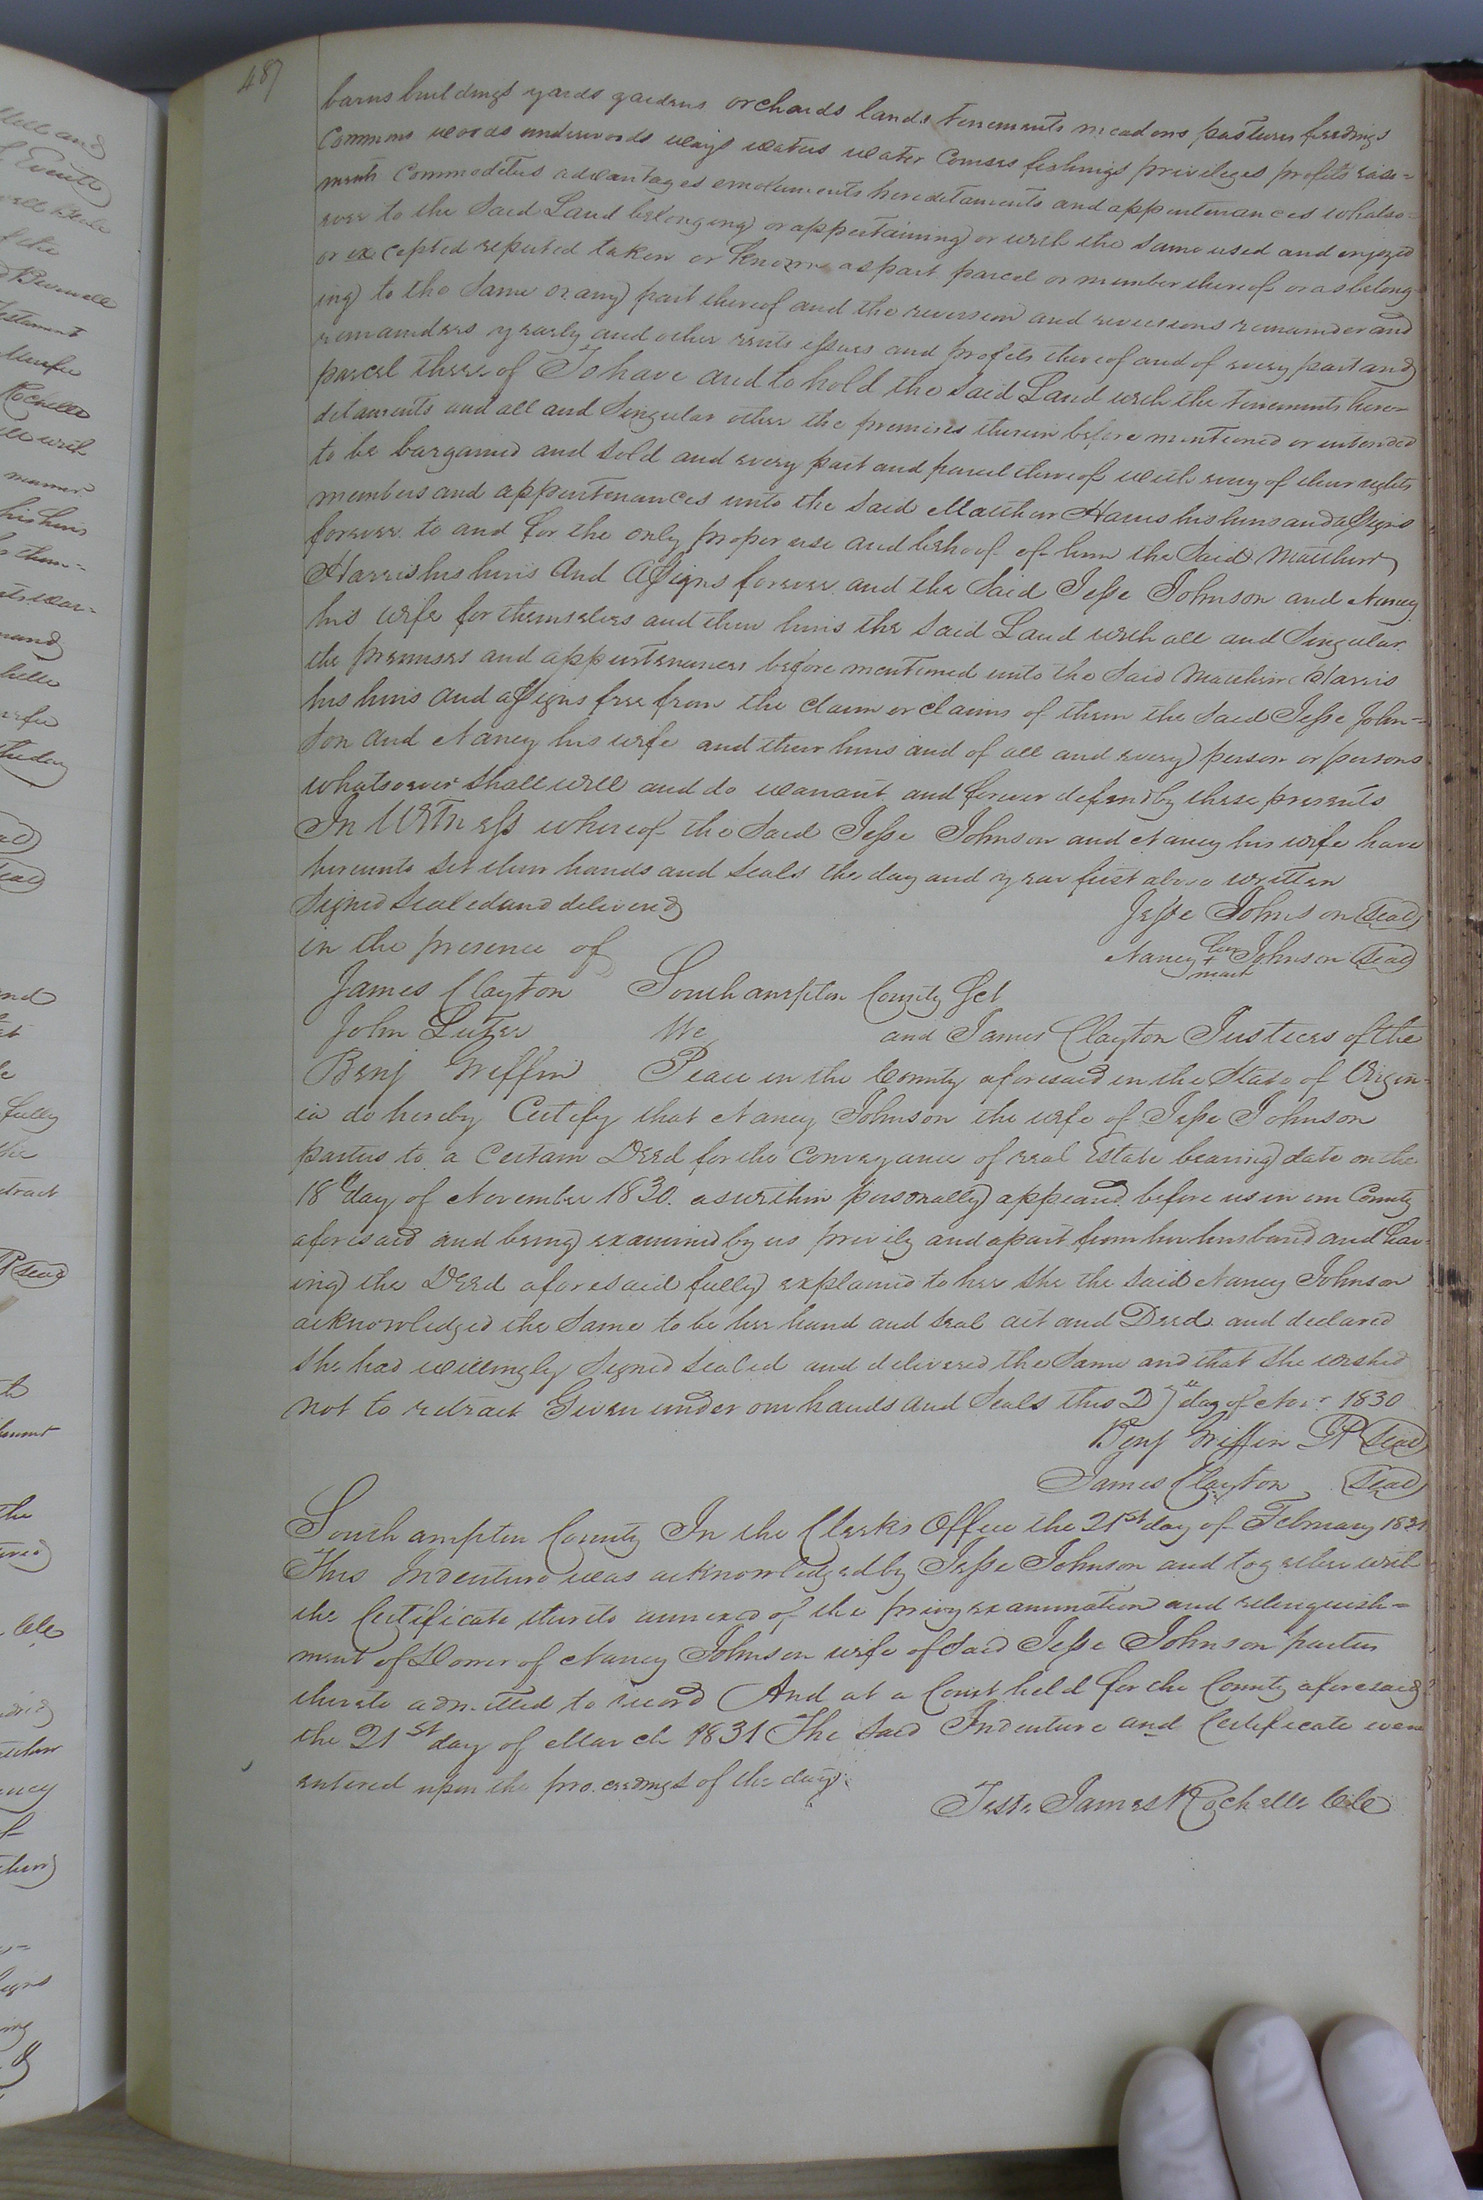 487
barns buildings yards gardens orchards lands tenements meadows pastures feedings
Commons woods underwoods ways waters water Courses fishings privileges profits ease=
ments Commodities advantages emoluments hereditaments and appurtenances whatso=
ever to the Said Land belonging or appertaining or with the Same used and enjoyed
or excepted reputed taken or known as part parcel or member thereof or as belong
ing to the Same or any part thereof and the reversion and reversions remainder and
remainders yearly and other rents issues and profits thereof and of every part and
parcel thereof To have and to hold the Said Land with the tenements here=
ditaments and all and Singular other the premises therein before mentioned or intended
to be bargained and Sold and every part and parcel thereof with every of their rights
members and appurtenances unto the Said Matthew Harris his heirs and assigns
forever to and for the only proper use and behoof of him the Said Matthew
Harris his heirs And Assigns forever and the Said Jesse Johnson and Nancy
his wife for themselves and their heirs the Said Land with all and Singular
the premises and appurtenances before mentioned unto the Said Matthew Harris
his heirs and assigns free from the claim or claims of them the Said Jesse John=
son and Nancy his wife and their heirs and of all and every person or persons
whatsoever Shall will and do warrant and forever defend by these presents
In Witness whereof the Said Jesse Johnson and Nancy his wife have
hereunto Set their hands and Seals the day and year first above written
Signed Sealed and delivered
Jesse Johnson Seal
in the presence of
Nancy her + mark Johnson Seal
James Clayton Southampton County Sct
John Luter We and James Clayton Justices of the
Benj Griffin Peace in the County aforesaid in the State of Virgin=
ia do hereby Certify that Nancy Johnson the wife of Jesse Johnson
parties to a Certain Deed for the Conveyance of real Estate bearing date on the
18th day of November 1830. as within personally appeared before us in our County
aforesaid and being examined by us privily and apart from her husband and hav=
ing the Deed aforesaid fully explained to her She the Said Nancy Johnson
acknowledged the Same to be her hand and Seal act and Deed and declared
She had willingly Signed Sealed and delivered the Same and that She wished
not to retract Given under our hands and Seals this day of Novr 1830
Benj Griffin JP Seal
James Clayton Seal
Southampton County In the Clerks Office the 21st day of February 1831
This Indenture was acknowledged by Jesse Johnson and together with
the Certificate thereto annexed of the privy examination and relinquish=
ment of Dower of Nancy Johnson wife of Said Jesse Johnson parties
thereto admitted to record And at a Court held for the County aforesaid
the 21st day of March 1831 The Said Indenture and Certificate were
entered upon the proceedings of the day.
Teste James Rochelle ClC